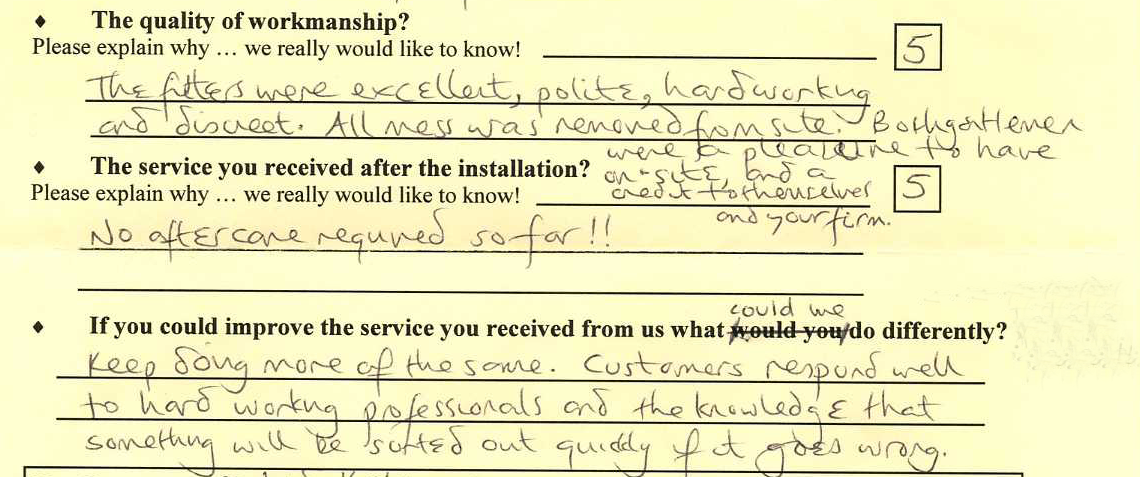 ♦ The quality of workmanship?
Please explain why ... we really would like to know! 5
The fitters were excellent, polite, hardworking
and discreet. All mess was removed from site. Both gentlemen
were a pleasure to have
on-site, and a
credit to themselves
and your firm.
♦ The service you received after the installation?
Please explain why ... we really would like to know! 5
No aftercare required so far!!
could we
♦ If you could improve the service you received from us what would you do differently?
Keep doing more of the same. Customers respond well
to hard working professionals and the knowledge that
something will be sorted out quickly if it goes wrong.